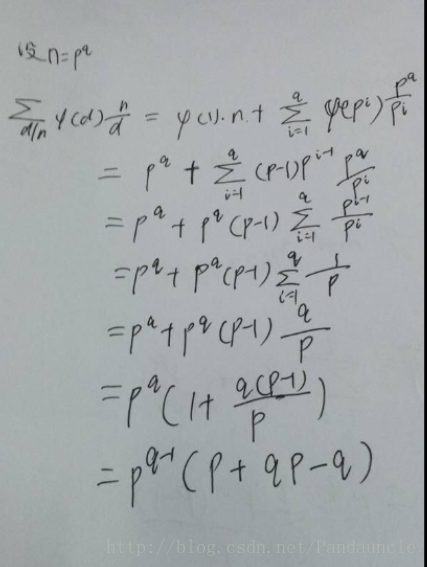 设 n=p^q
∑_{d|n} φ(d) n/d = φ(1)·n + ∑_{i=1}^{q} φ(p^i) p^q/p^i
= p^q + ∑_{i=1}^{q} (p-1)p^{i-1} p^q/p^i
= p^q + p^q(p-1) ∑_{i=1}^{q} p^{i-1}/p^i
= p^q + p^q(p-1) ∑_{i=1}^{q} 1/p
= p^q + p^q(p-1) q/p
= p^q(1 + q(p-1)/p)
= p^{q-1}(p + qp - q)
http://blog.csdn.net/Pandauncle